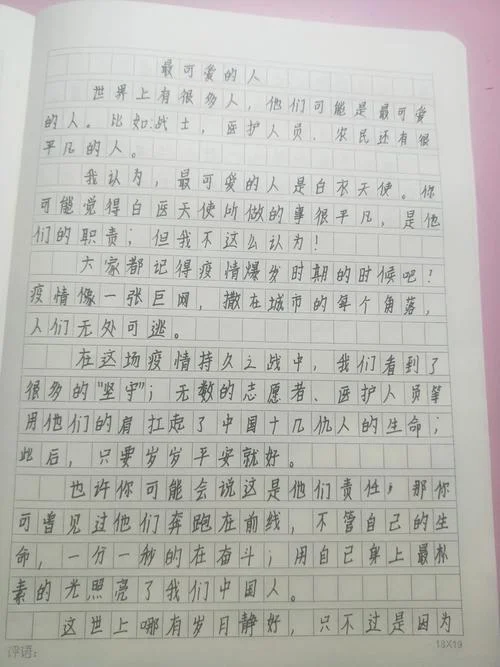 最可爱的人
世界上有很多人，他们可能是最可爱
的人。比如:战士，医护人员、农民还有很
平凡的人。
我认为，最可爱的人是白衣天使。你
可能觉得白医天使所做的事很平凡，是他
们的职责；但我不这么认为！
大家都记得疫情爆发时期的时候吧！
疫情像一张巨网，撒在城市的每个角落，
人们无处可逃。
在这场疫情持久之战中，我们看到了
很多的"坚守"；无数的志愿者、医护人员等
用他们的肩扛起了中国十几亿人的生命；
此后，只要岁岁平安就好。
也许你可能会说这是他们责任；那你
可曾见过他们奔跑在前线，不管自己的生
命，一分一秒的在奋斗；用自己身上最朴
素的光照亮了我们中国人。
这世上哪有岁月静好，只不过是因为
评语：
18X19